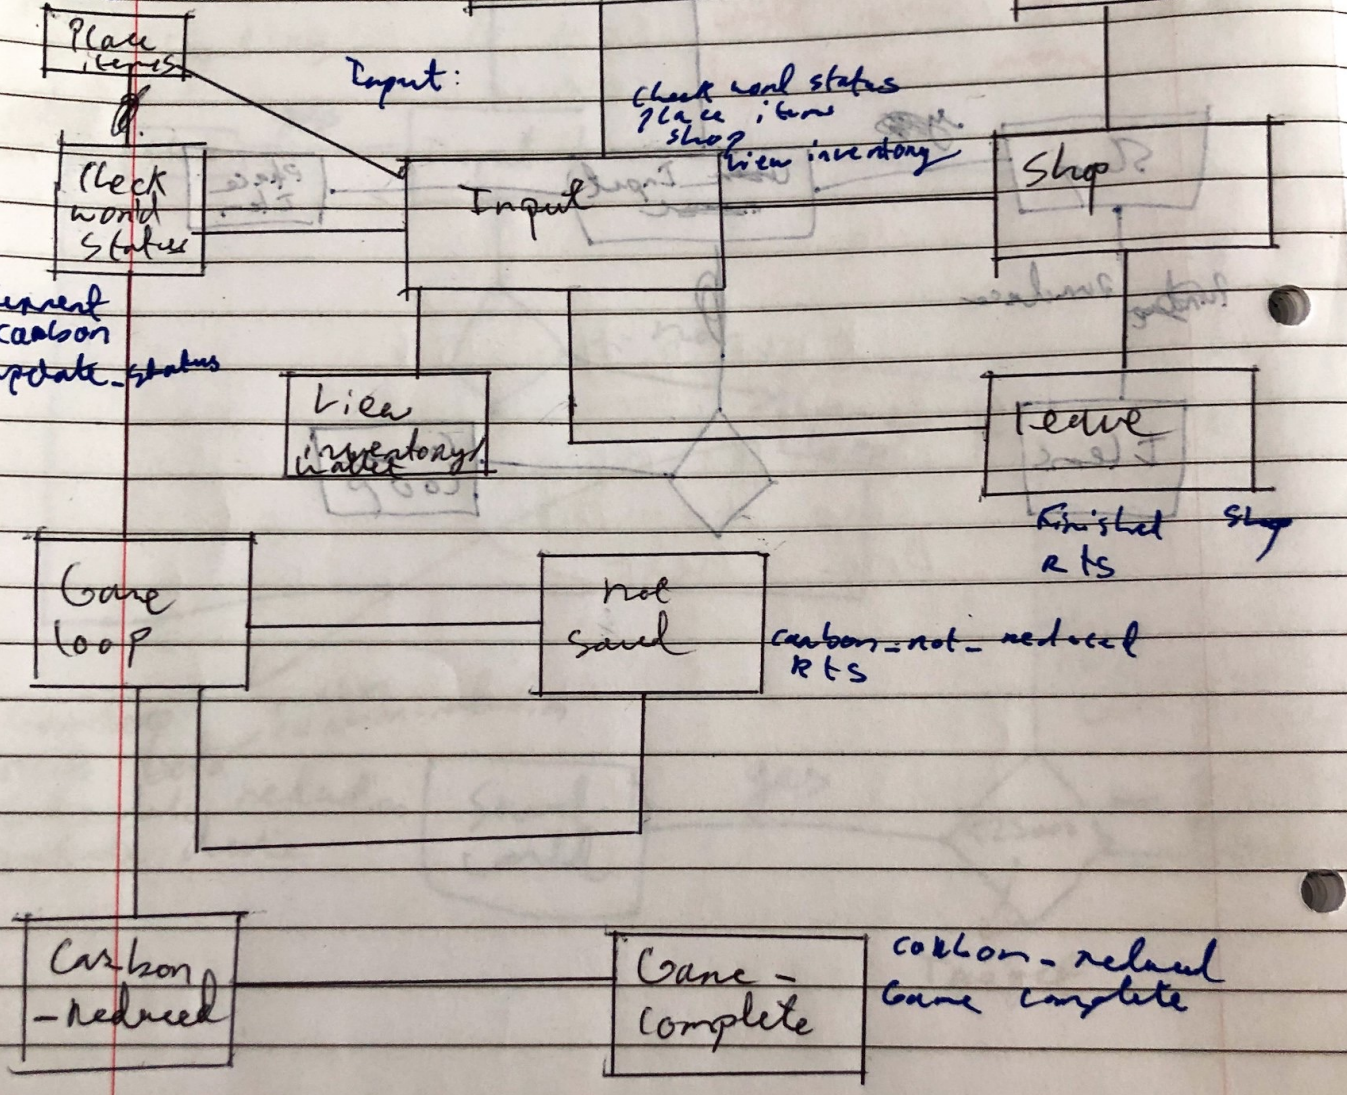 Place
items
Input:
Check world status
Place items
Shop
View inventory
Check
world
status
Input
Shop
current
carbon
update_status
View
inventory/
wallet
leave
Finished Shop
RTS
Game
loop
not
saved
carbon_not_reduced
RTS
Carbon
_reduced
Game_
complete
carbon_reduced
Game complete